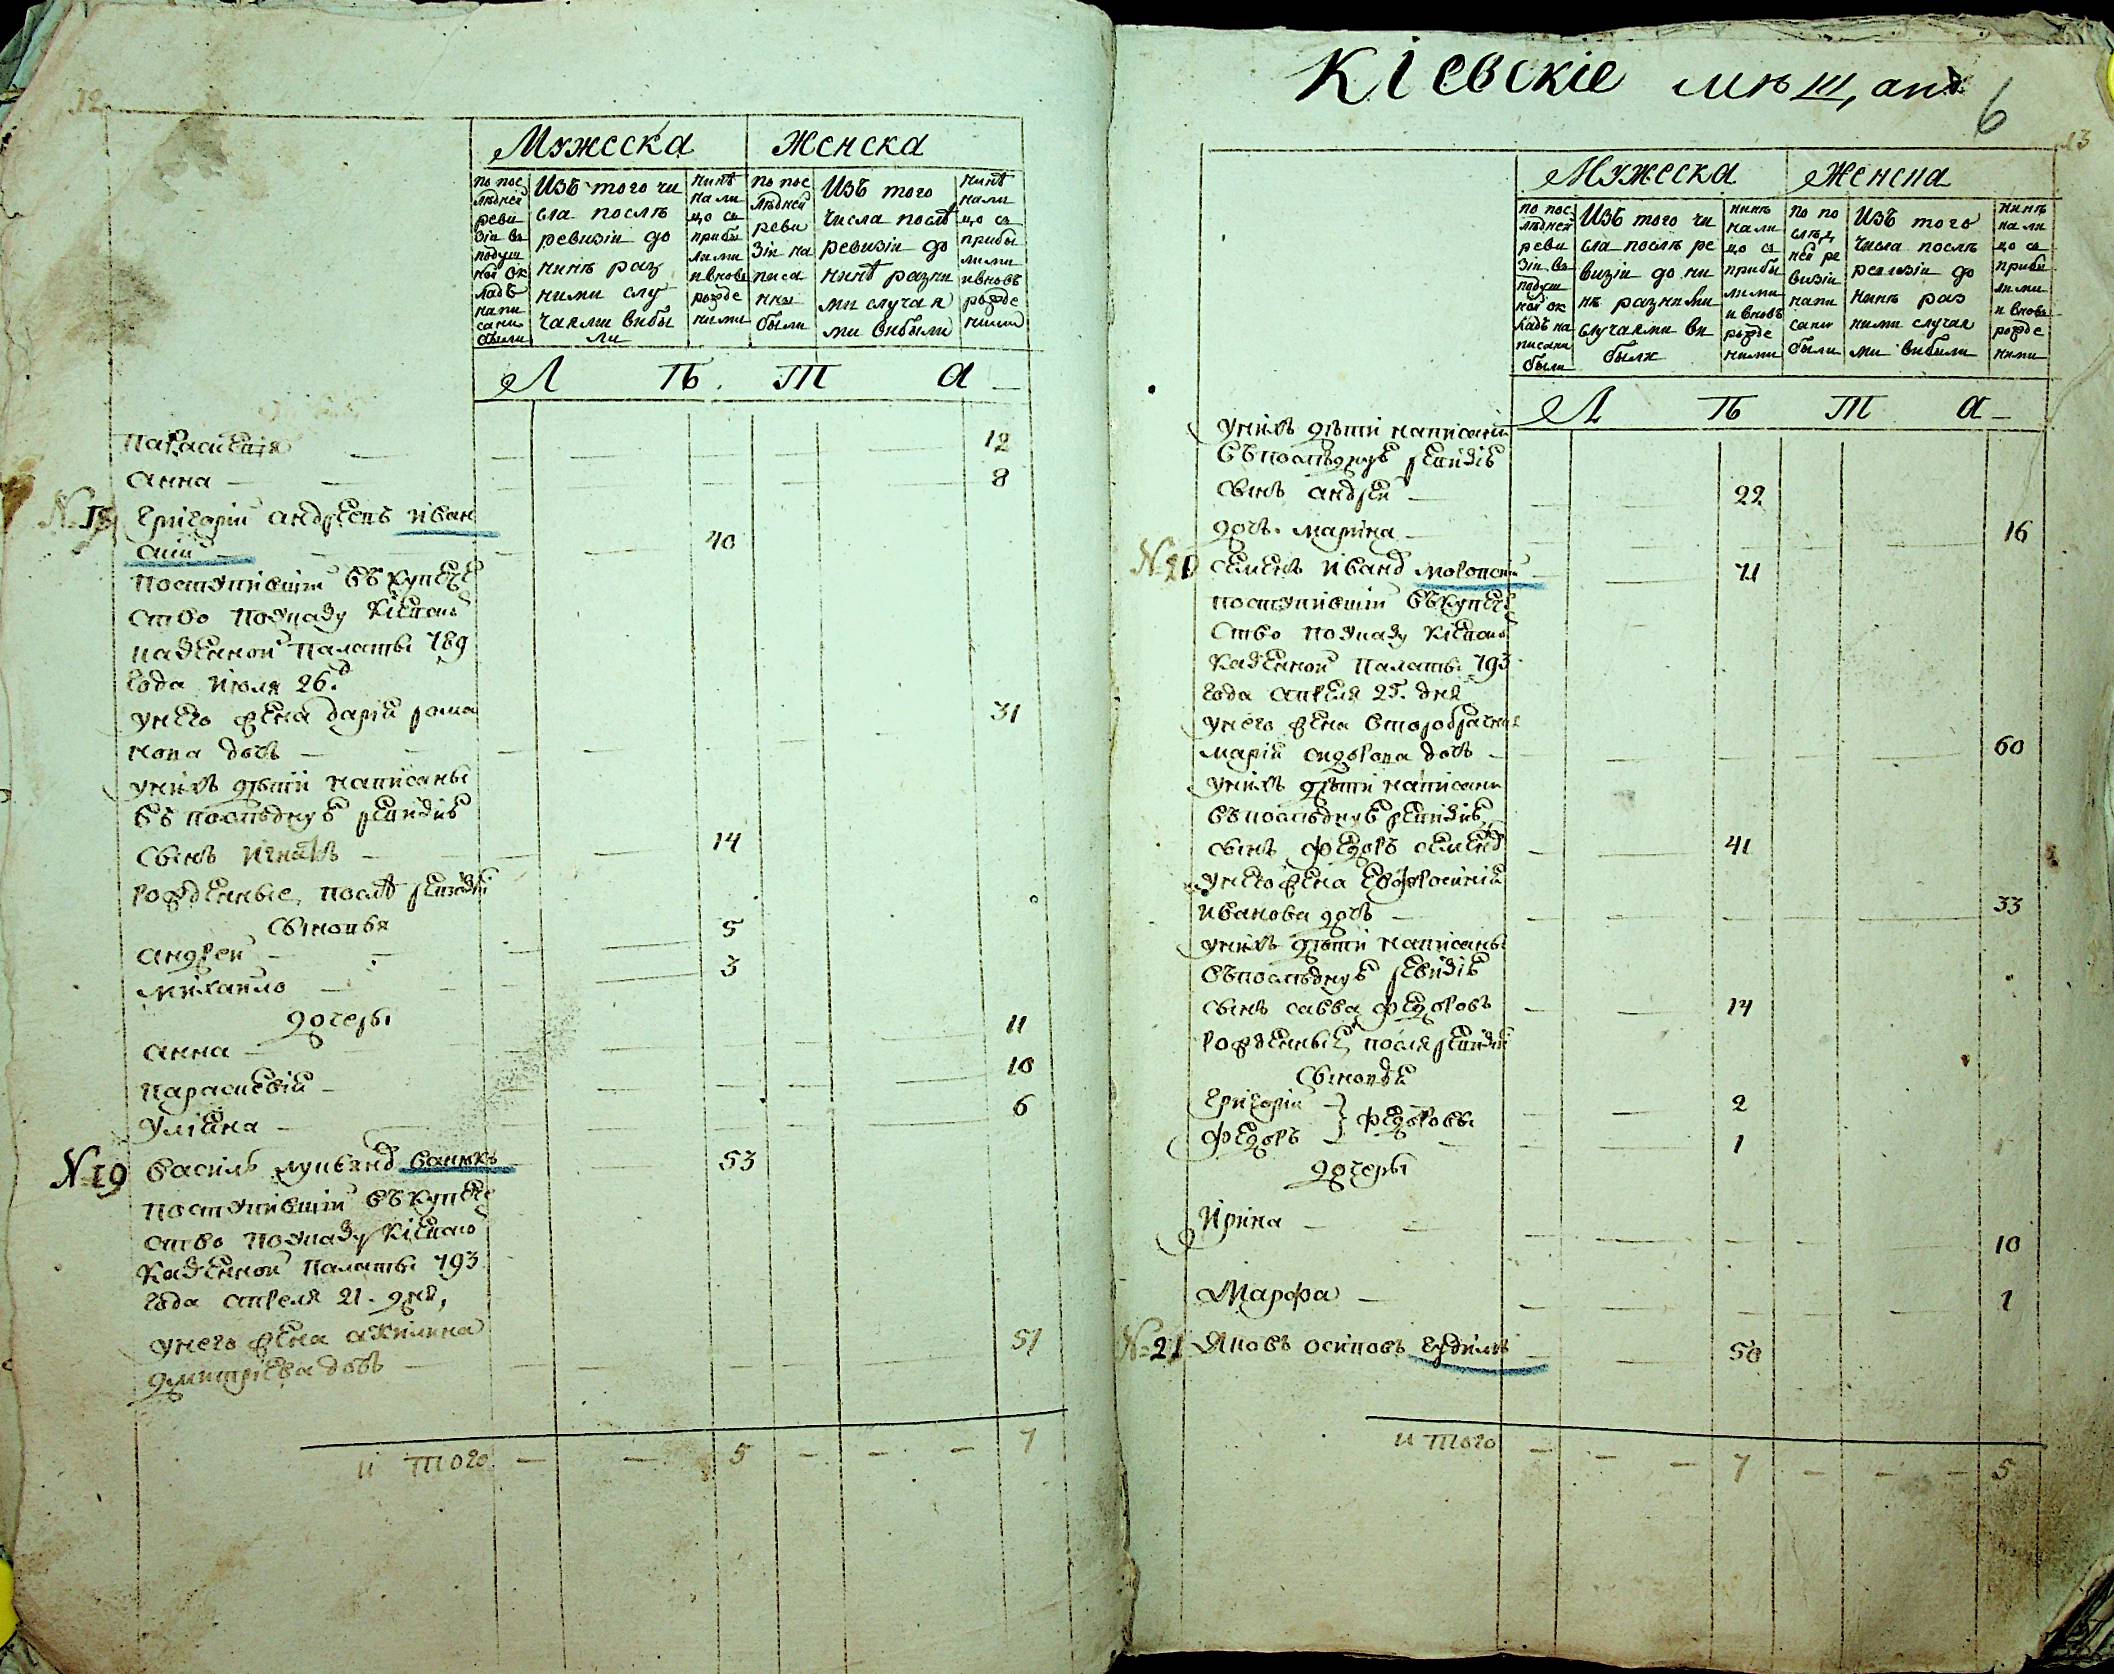 12
Мужеска Женска
по пос лѣдней реви зіи въ подуш ной ок ладъ напи сани были
Изъ того чи сла послѣ ревизіи до нинѣ раз ними слу чаями вибы ли
нинѣ на ли цо съ прибы лими и вновь рожде ними
по пос лѣдней реви зіи на писа ны были
Изъ того числа послѣ ревизіи до нинѣ разни ми случая ми вибыли
нинѣ на ли цо съ прибы лими и вновь рожде ними
Л Ѣ Т А
Параскевія 12
Анна 8
№ 18 Григорій Андреевъ Иван
ский 40
поступившій въ купече
ство по указу кіевской
казенной палаты 789
года июля 26
у него жена дарія рома 31
нова дочь
у нихъ дѣти написаны
въ последнуѣ ревизіѣ
сынъ Игнатъ 14
рожденные послѣ ревизіи
сыновья
андрей 5
михайло 3
дочеры
анна 11
параскевія 10
улияна 6
№ 19 василь лукянов 53
поступившій въ купече
ство по указу кіевской
казенной палаты 793
года апреля 21. дня,
у него жена акилина
дмитріева дочь 51
и того 5 7
Кіевскіе мѣщане
6
13
Мужеска Женска
по пос лѣдней реви зіи въ подуш ной ок ладъ на писани были
Изъ того чи сла послѣ ре визіи до ни нѣ разними случаями ви были
нинѣ на ли цо съ прибы лими и вновь рожде ними
по по слѣд ней ре визіи напи сани были
Изъ того числа послѣ ревизіи до нинѣ раз ними случая ми вибыли
нинѣ на ли цо съ прибы лими и вновь рожде ними
Л Ѣ Т А
у нихъ дѣти написани
въ последнуѣ ревизіѣ
сынъ андрей 22
дочь марина 16
№ 20 семенъ иванов 71
поступившій въ купече
ство по указу кіевской
казенной палаты 793
года апреля 25. дня
у него жена второбрачная
марія сидорова дочь 60
у нихъ дѣти написани
въ последнуѣ ревизіѣ
сынъ федоръ семенов 41
у него жена евфросинія
иванова дочь 33
у нихъ дѣти написаны
въ последнуѣ ревизіѣ
сынъ савва федоровъ 14
рожденные после ревизіи
сыновья
григорій 2
федоръ федоровы 1
дочеры
Ирина 10
Марфа 1
№ 21 Яковъ осиповъ 50
и того 7 5